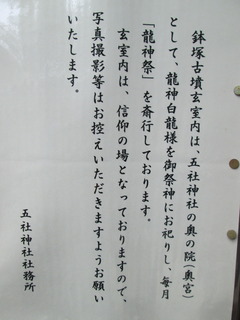 鉢塚古墳玄室内は、五社神社の奥の院(奥宮)
として、龍神白龍様を御祭神にお祀りし、毎月
「龍神祭」を斎行しております。
玄室内は、信仰の場となっておりますので、
写真撮影等はお控えいただきますようお願い
いたします。
五社神社社務所